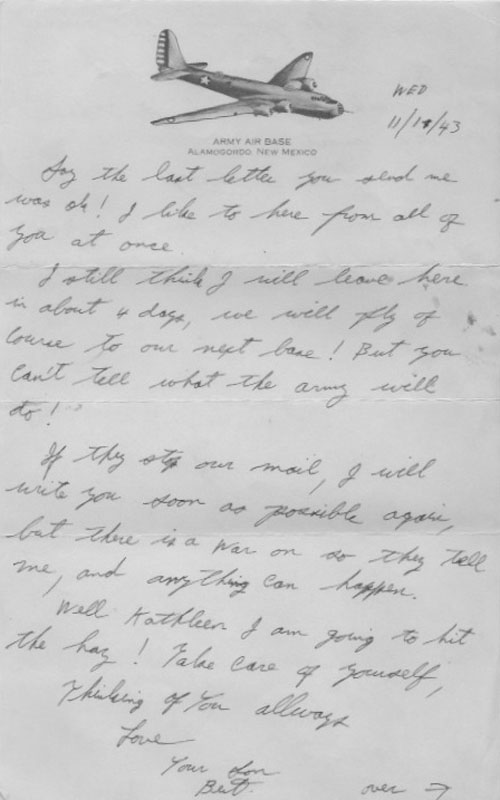 WED
11/18/43
ARMY AIR BASE
ALAMOGORDO, NEW MEXICO
Say the last letter you send me
was ok! I like to here from all of
you at once.
I still think I will leave here
in about 4 days, we will fly of
course to our next base! But you
can't tell what the army will
do!
If they stop our mail, I will
write you soon as possible again,
but there is a war on so they tell
me, and anything can happen.
Well Kathleen I am going to hit
the hay! Take care of yourself,
Thinking of You allways
Love
Your Son
Bert.
over →